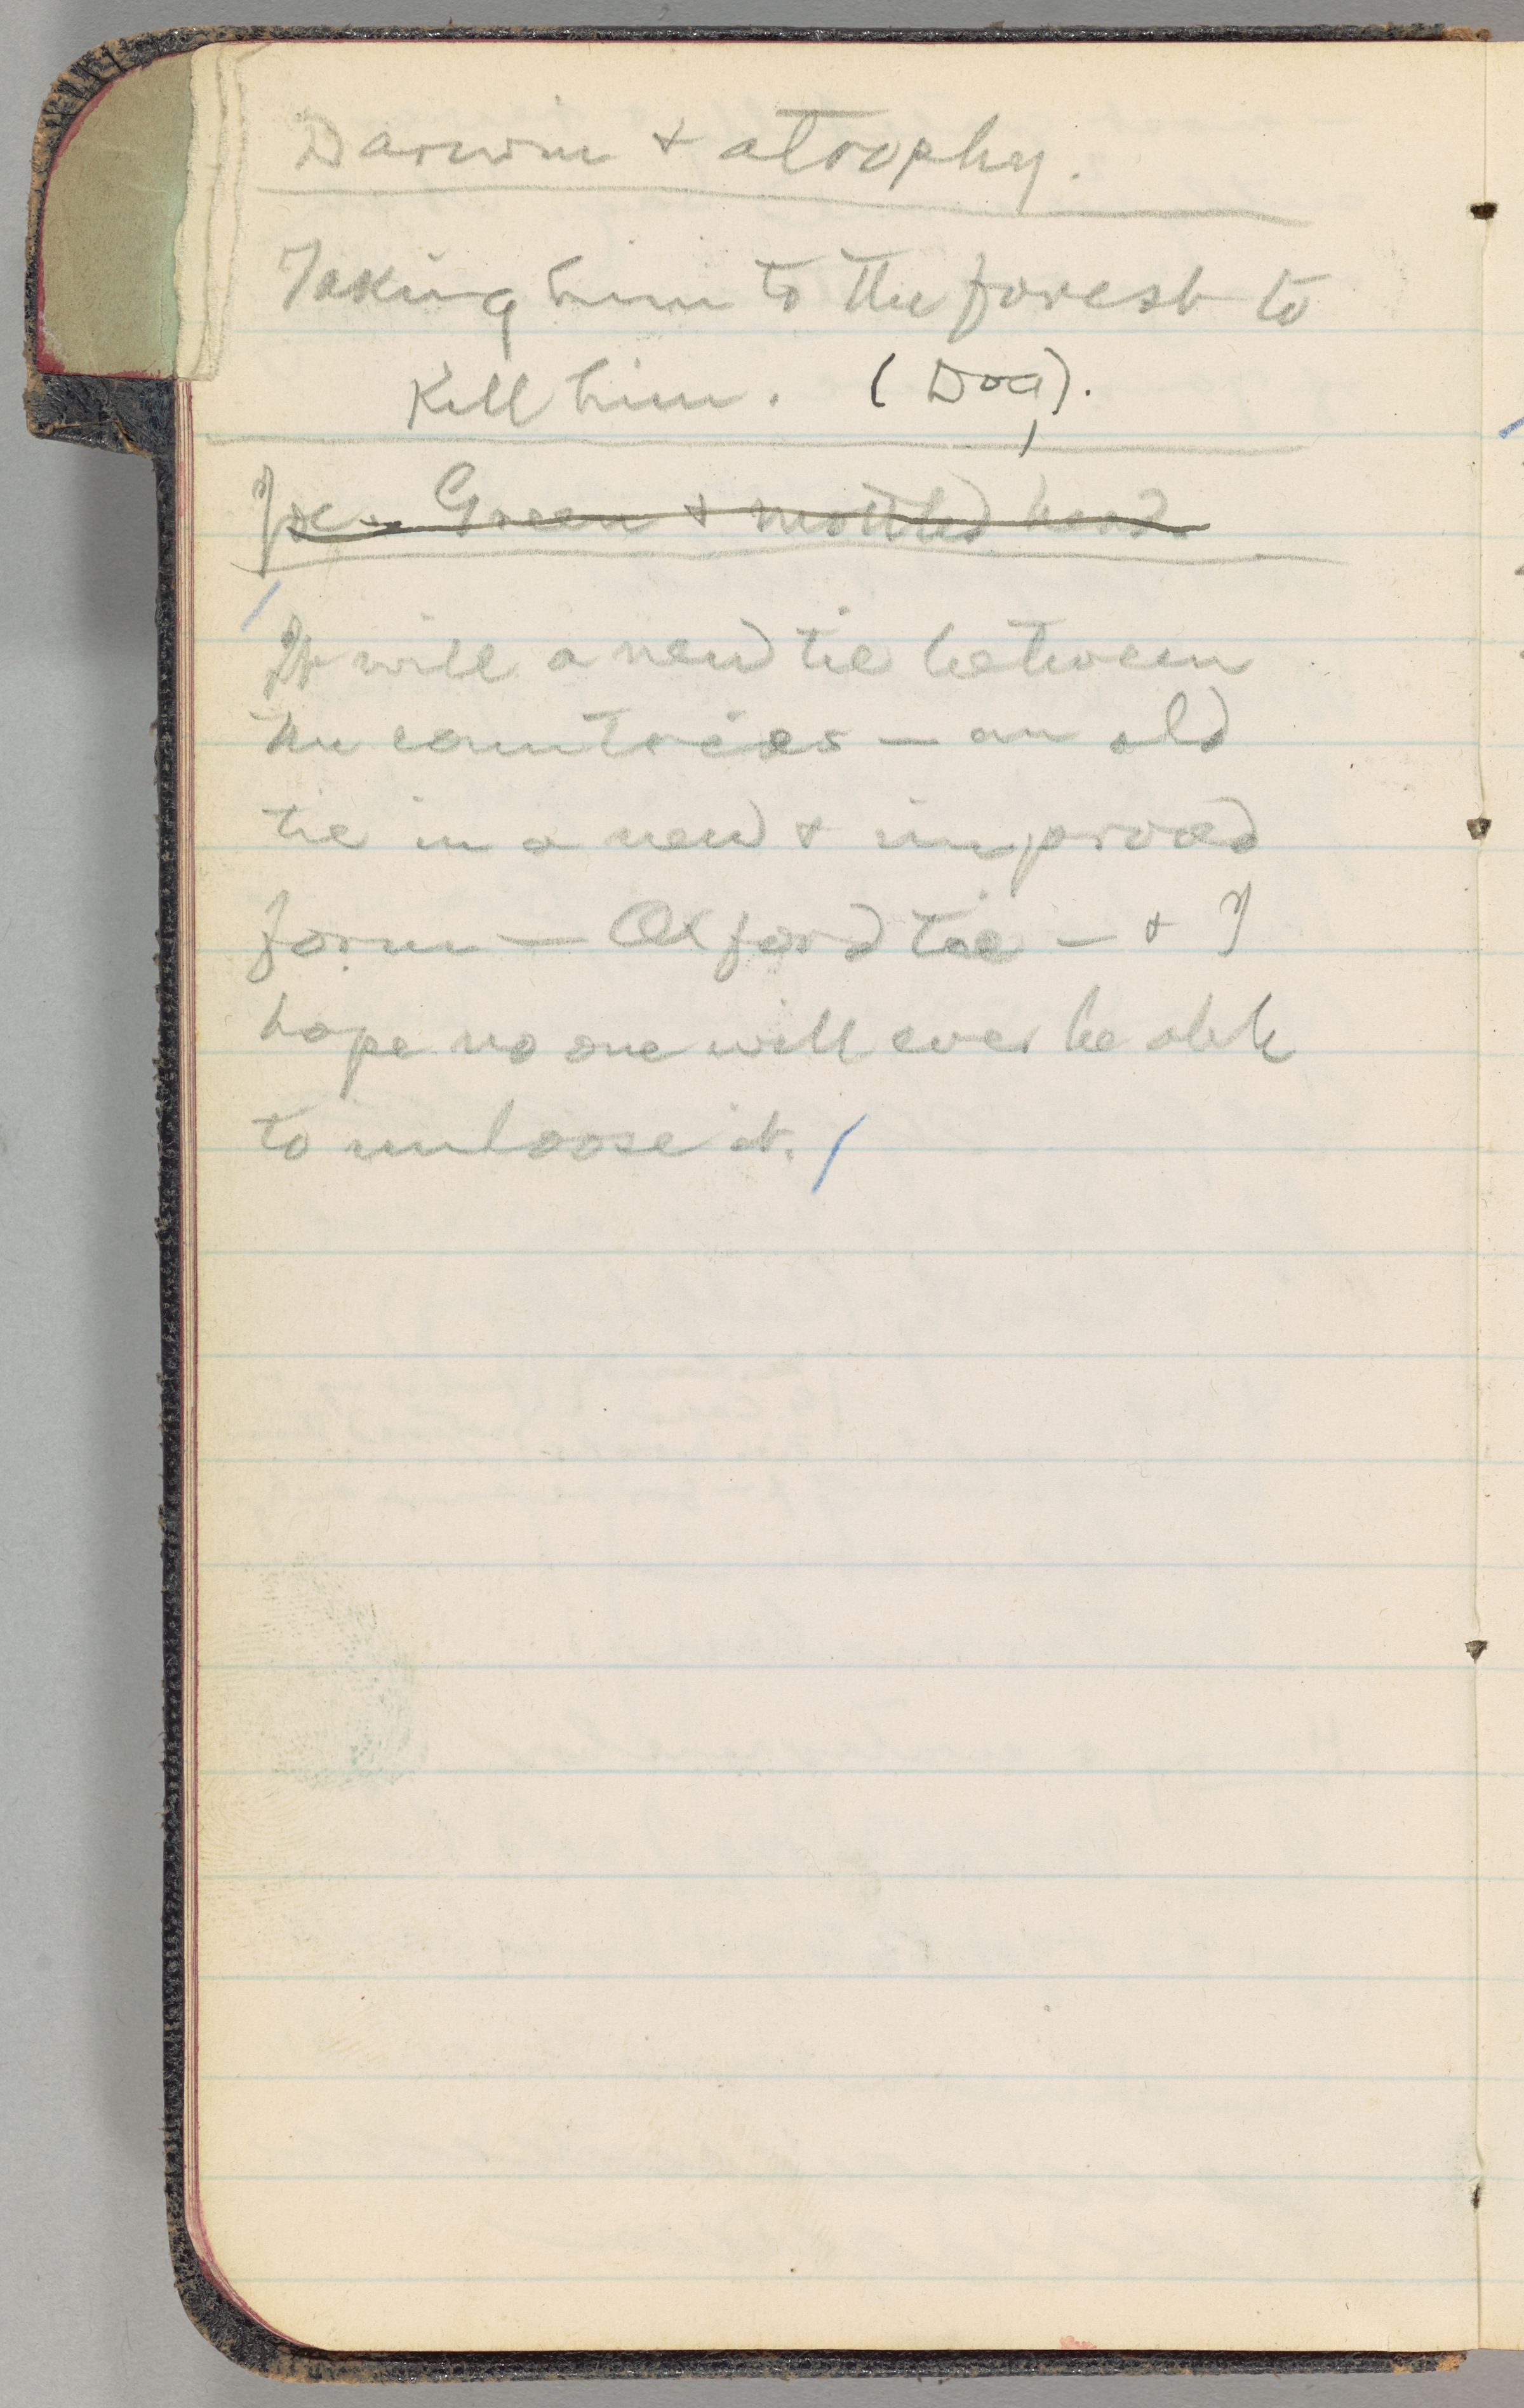 Darwin & atrophy.
Taking him to the forest to
Kill him. (Dog).
Green & mottled
It will a new tie between
the countries — an old
tie in a new & improved
form — Oxford tie — & I
hope no one will ever be able
to unloose it. /